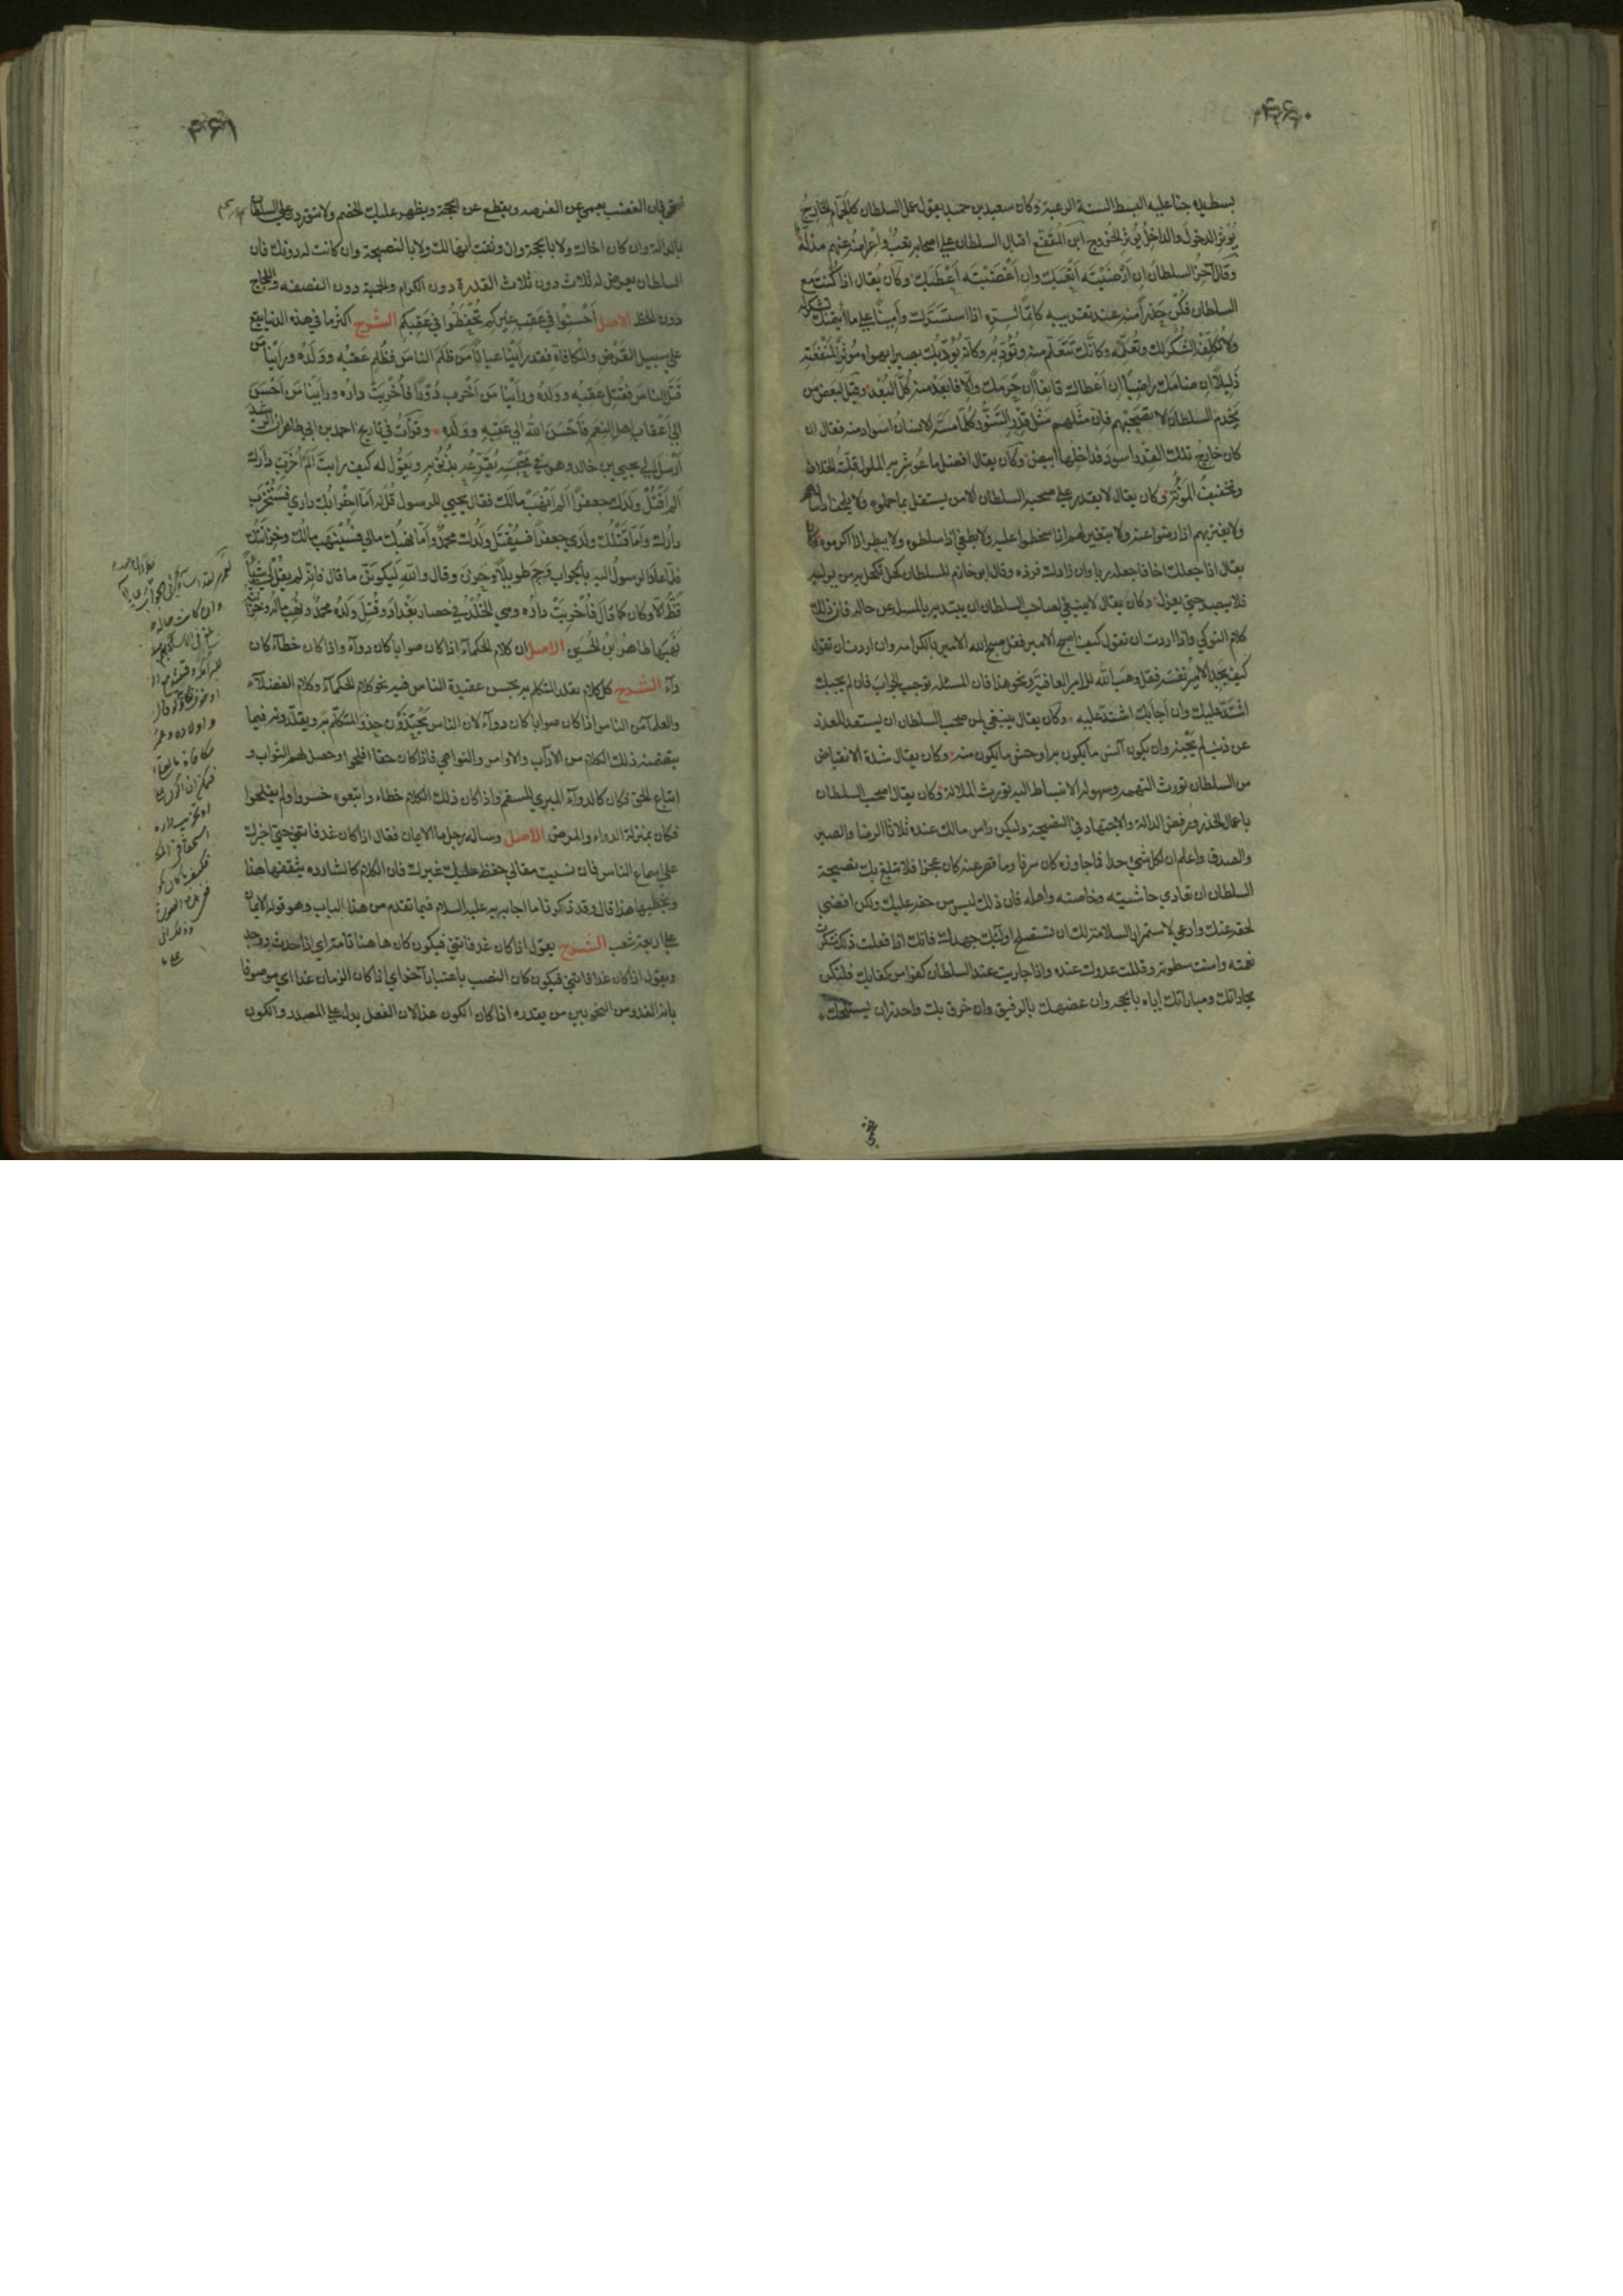 ۴۶۰
بسط يده جناعليه البسط السنة الرعية وكان سعيد بن حميد يقول عمل السلطان كالحمام الخارج
يُؤثر الدخول والداخل يُؤثر الخروج ابن المقفع اقبال السلطان على اصحابه تعب واعراضه عنهم مذلة
وقال آخر السلطان ان ارضيته اتعبك وان اغضبته اعطبك وكان يقال اذا كنت مع
السلطان فكن حذرا منه عند تقريبه كاتما لسره اذا استسرك وامينا على ما ائتمنك تشكر له
ولا تكلفه الشكر لك وتعلمه وكانك تتعلم منه وتؤدبه وكانه يؤدبك بصيرا بهواه مؤثرا لمنفعته
ذليلا ان ضامك راضيا ان اعطاك قانعا ان حرمك والا فابعد منه كل البعد وقيل لبعض من
يخدم السلطان لا تصحبهم فان مثلهم مثل قدر التسود كلما مسه الانسان اسود منه فقال ان
كان خارج تلك القدر اسود فداخلها ابيض وكان يقال افضل ما عوشر به الملوك قلة الخلاف
وتخفيف المؤنة وكان يقال لا يقدر على صحبة السلطان الا من يستقل بما حملوه ولا يلحف اذا
ولا يغتر بهم اذا رضوا عنه ولا يتغير لهم اذا سخطوا عليه ولا يطغى اذا سلطوه ولا يبطر اذا اكرموه وكان
يقال اذا جعلك اخا فاجعله ربا وان زادك فزده وقال ابو حازم للسلطان كحل يكحل به من يوليه
فلا يبصر حتى يعزل وكان يقال لا ينبغي لصاحب السلطان ان يبتديه بالمسئلة عن حاله فان ذلك
كلام النوكي واذا اردت ان تقول كيف اصبح الامير فقل صبح الله الامير بالكرامه وان اردت ان تقول
كيف يجد الامير نفسه فقل وهب الله للامير العافية ونحو هذا فان المسئلة توجب الجواب فان لم يجبك
اشتد عليك وان اجابك اشتد عليه وكان يقال ينبغي لمن صحب السلطان ان يستعد للعذر
عن ذنب لم يجنه وان يكون آنس ما يكون به اوحش ما يكون منه وكان يقال شدة الانقباض
من السلطان تورث التهمه وسهولة الانبساط اليه تورث الملالة وكان يقال اصحب السلطان
باعمال الحذر ورفض الدالة والاجتهاد في النصيحة وليكن راس مالك عنده ثلاثا الرضا والصبر
والصدق واعلم ان لكل شئ حدا فما جاوزه كان سرفا وما قصر عنه كان عجزا فلا تبلغ بك نصيحة
السلطان ان تعادي حاشيته وخاصته واهله فان ذلك ليس من حقه عليك ولكن اقضى
لحقه عنك وادعى لاستمرار السلامة لك ان تستصلح اولئك جهدك فانك اذا فعلت ذلك شكرت
نعمته وامنت سطوته وقللت عدوك عنده واذا جاريت عند السلطان كفوا من كفاتك فلتكن
مجاراتك ومباراتك اياه بالحجه وان عضهك بالرفق وان خرق بك واحذر ان يستلجك
۴۶۱
فتحمى فان الغضب يعمى عن الفرصه ويقطع عن الحجة ويظهر عليك الخصم ولا تتوردن على السلطان
بالدالة وان كان اخاك ولا بالحجة وان وثقت انها لك ولا بالنصيحة وان كانت له دونك فان
السلطان يعرض له ثلاث دون ثلاث القدرة دون الكرام والحمية دون النصفه واللجاج
دون الحظ الاصل احسنوا في عقب غيركم تحفظوا في عقبكم الشرح اكثر ما في هذه الدنيا يقع
على سبيل القرض والمكافاة فقد راينا عيانا من ظلم الناس فظلم عقبه وولده وراينا من
قتل الناس فقتل عقبه وولده وراينا من اخرب دورا فاخربت داره وراينا من احسن
الى اعقاب اهل النعم فاحسن الله الى عقبه وولده وقرات في تاريخ احمد بن ابي طاهر ان الرشيد
ارسل الى يحيى بن خالد وهو في محبسه يقرعه بذنوبه ويقول له كيف رايت الم اخرب دارك
الم اقتل ولدك جعفرا الم انهب مالك فقال يحيى للرسول قل له اما اخرابك داري فستخرب
دارك واما قتلك ولدي جعفرا فسيقتل ولدك محمد واما نهبك مالي فسينهب مالك وخزانتك
فلما عاد الرسول اليه بالجواب وجم طويلا وحزن وقال والله ليكونن ما قال فانه لم يقل لي شيئا
قط الا وكان كما قال فاخربت داره وهي الخلد في حصار بغداد وقتل ولده محمد ونهب ماله وخزانته
نهبها طاهر بن الحسين الاصل ان كلام الحكماء اذا كان صوابا كان دواء واذا كان خطاء كان
داء الشرح كل كلام يقلد المتكلم به بحسن عقيدة الناس فيه نحو كلام الحكماء وكلام الفضلاء
والعلماء من الناس اذا كان صوابا كان دواء لان الناس يحتذون حذو المتكلم به ويقلدونه فيما
يتضمنه ذلك الكلام من الآداب والاوامر والنواهي فاذا كان حقا افلحوا وحصل لهم الثواب و
اتباع الحق فكان كالدواء المبري للسقم واذا كان ذلك الكلام خطاء واتبعوه خسروا ولم يفلحوا
فكان بمنزلة الداء والمرض الاصل وساله رجل ما الايمان فقال اذا كان غد فاتني حتى اخبرك
على اسماع الناس فان نسيت مقالي حفظ عليك غيرك فان الكلام كالشارده يثقفها هذا
ويخطيها هذا قال وقد ذكرنا ما اجابه به عليه السلام فيما تقدم من هذا الباب وهو قوله الايمان
على اربعة شعب الشرح يقول اذا كان غد فاتني فيكون كان هاهنا تامة اي اذا حدث ووجد
ويقول اذا كان غدا فاتني فيكون كان النصب باعتبار آخر اي اذا كان الزمان غدا اي موصوفا
بانه الغد ومن النحويين من يقدره اذا كان الكون غدا لان الفعل يدل على المصدر والكون